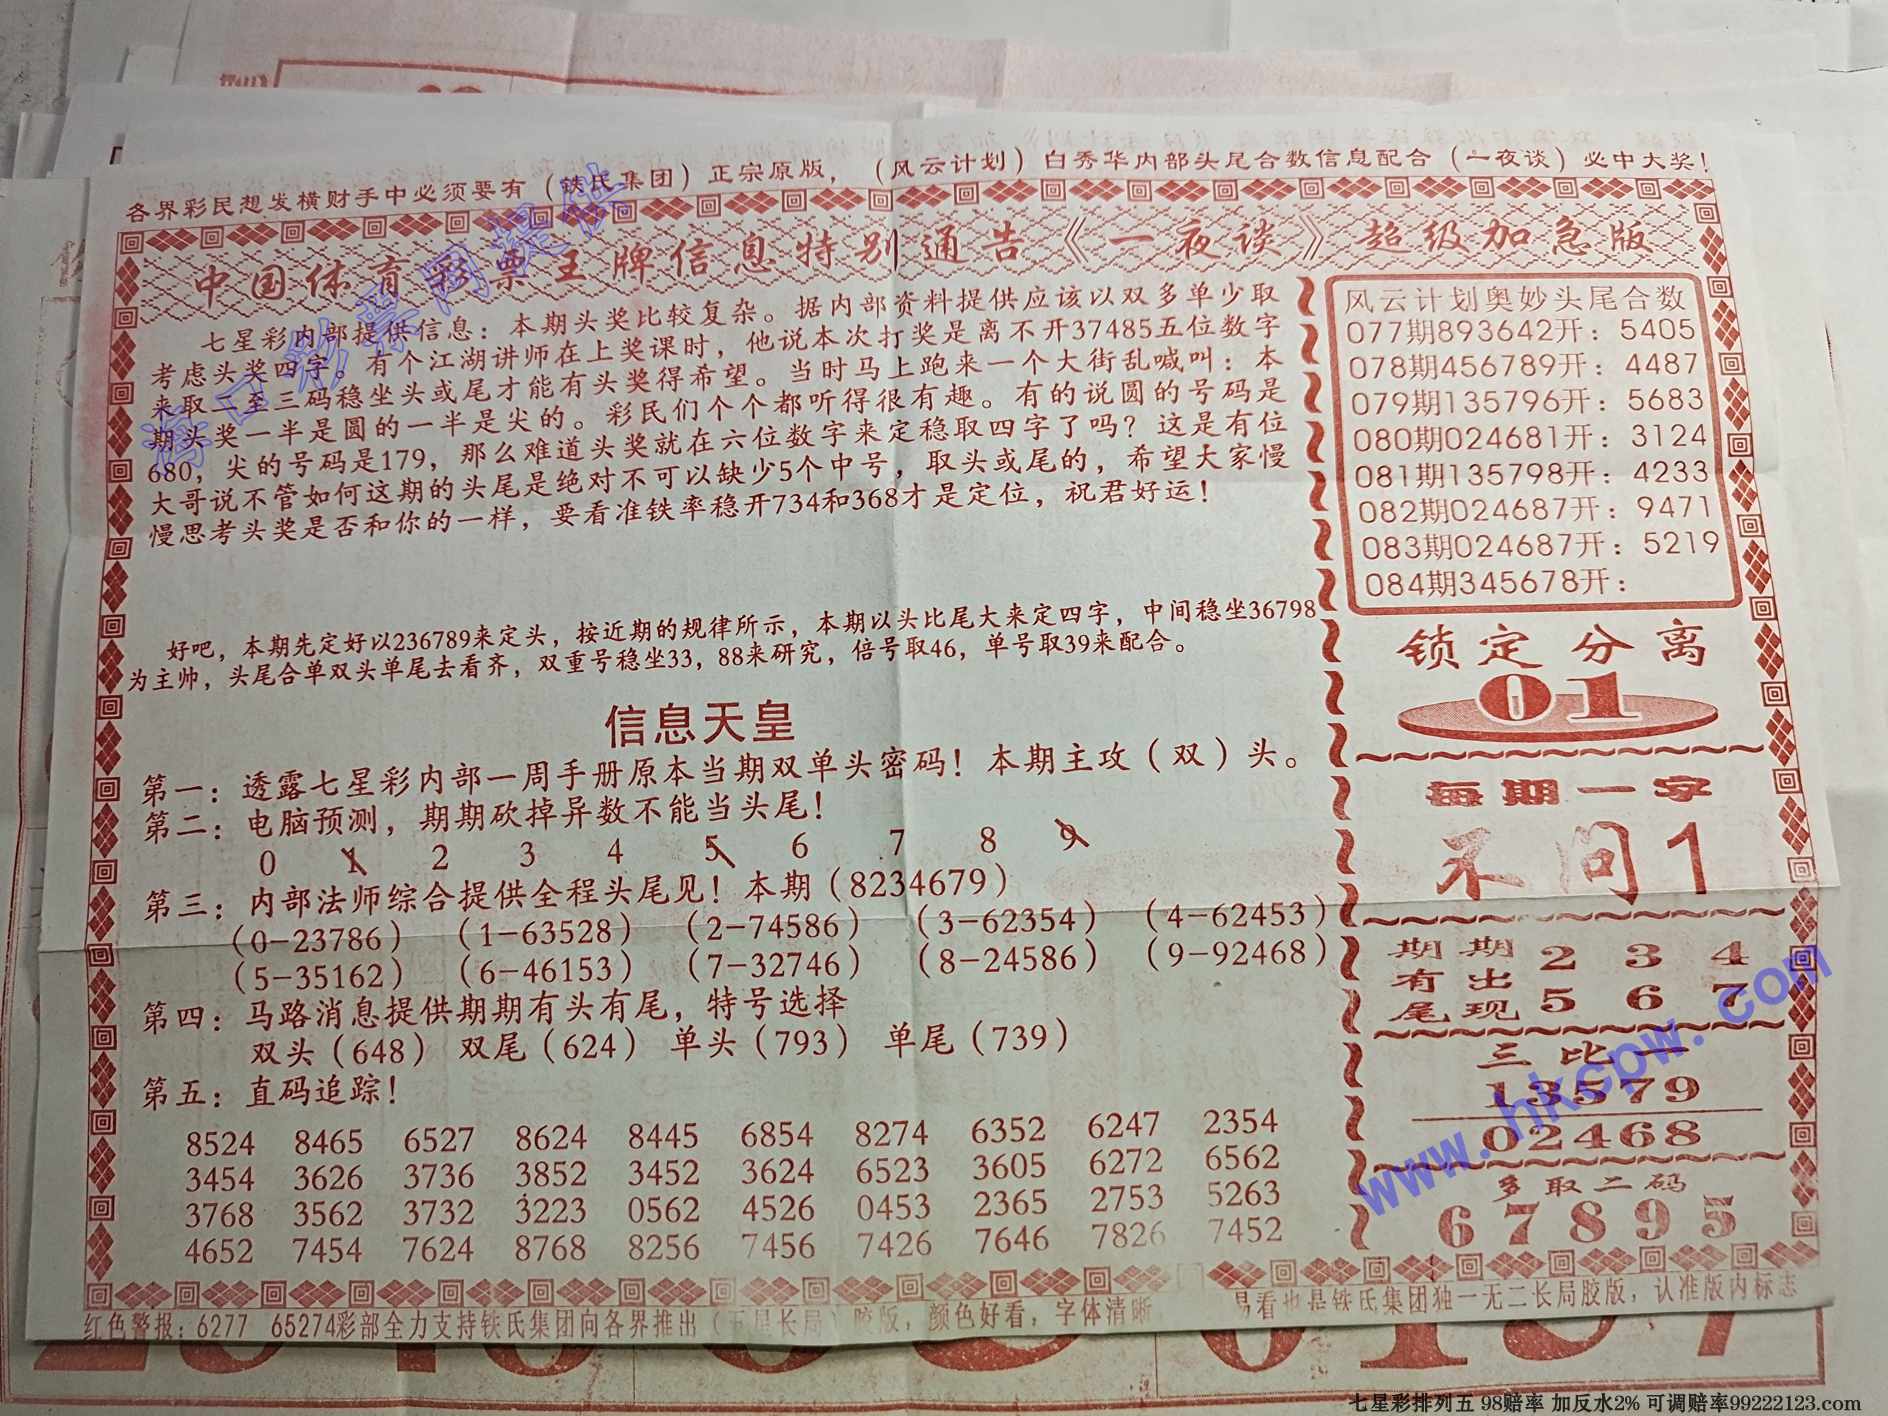 各界彩民想发横财手中必须要有（铁氏集团）正宗原版，（风云计划）白秀华内部头尾合数信息配合（一夜谈）必中大奖！
中国体育彩票王牌信息特别通告《一夜谈》超级加急版
七星彩内部提供信息：本期头奖比较复杂。据内部资料提供应该以双多单少取
考虑头奖四字。有个江湖讲师在上奖课时，他说本次打奖是离不开37485五位数字
来取二至三码稳坐头或尾才能有头奖得希望。当时马上跑来一个大街乱喊叫：本
期头奖一半是圆的一半是尖的。彩民们个个都听得很有趣。有的说圆的号码是
680，尖的号码是179，那么难道头奖就在六位数字来定稳取四字了吗？这是有位
大哥说不管如何这期的头尾是绝对不可以缺少5个中号，取头或尾的，希望大家慢
慢思考头奖是否和你的一样，要看准铁率稳开734和368才是定位，祝君好运！
好吧，本期先定好以236789来定头，按近期的规律所示，本期以头比尾大来定四字，中间稳坐36798
为主帅，头尾合单双头单尾去看齐，双重号稳坐33，88来研究，倍号取46，单号取39来配合。
信息天皇
第一：透露七星彩内部一周手册原本当期双单头密码！本期主攻（双）头。
第二：电脑预测，期期砍掉异数不能当头尾！
0 1 2 3 4 5 6 7 8 9
第三：内部法师综合提供全程头尾见！本期（8234679）
（0-23786） （1-63528） （2-74586） （3-62354） （4-62453）
（5-35162） （6-46153） （7-32746） （8-24586） （9-92468）
第四：马路消息提供期期有头有尾，特号选择
双头（648） 双尾（624） 单头（793） 单尾（739）
第五：直码追踪！
8524 8465 6527 8624 8445 6854 8274 6352 6247 2354
3454 3626 3736 3852 3452 3624 6523 3605 6272 6562
3768 3562 3732 3223 0562 4526 0453 2365 2753 5263
4652 7454 7624 8768 8256 7456 7426 7646 7826 7452
风云计划奥妙头尾合数
077期893642开：5405
078期456789开：4487
079期135796开：5683
080期024681开：3124
081期135798开：4233
082期024687开：9471
083期024687开：5219
084期345678开：
锁定分离
01
每期一字
不问1
期期 2 3 4
有出
尾现 5 6 7
三比一
13579
02468
多取二码
67895
红色警报：6277 65274彩部全力支持铁氏集团向各界推出（五星长局）胶版，颜色好看，字体清晰 易看也是铁氏集团独一无二长局胶版，认准版内标志
海口彩票网提供
www.hkcpw.com
七星彩排列五 98赔率 加反水2% 可调赔率99222123.com